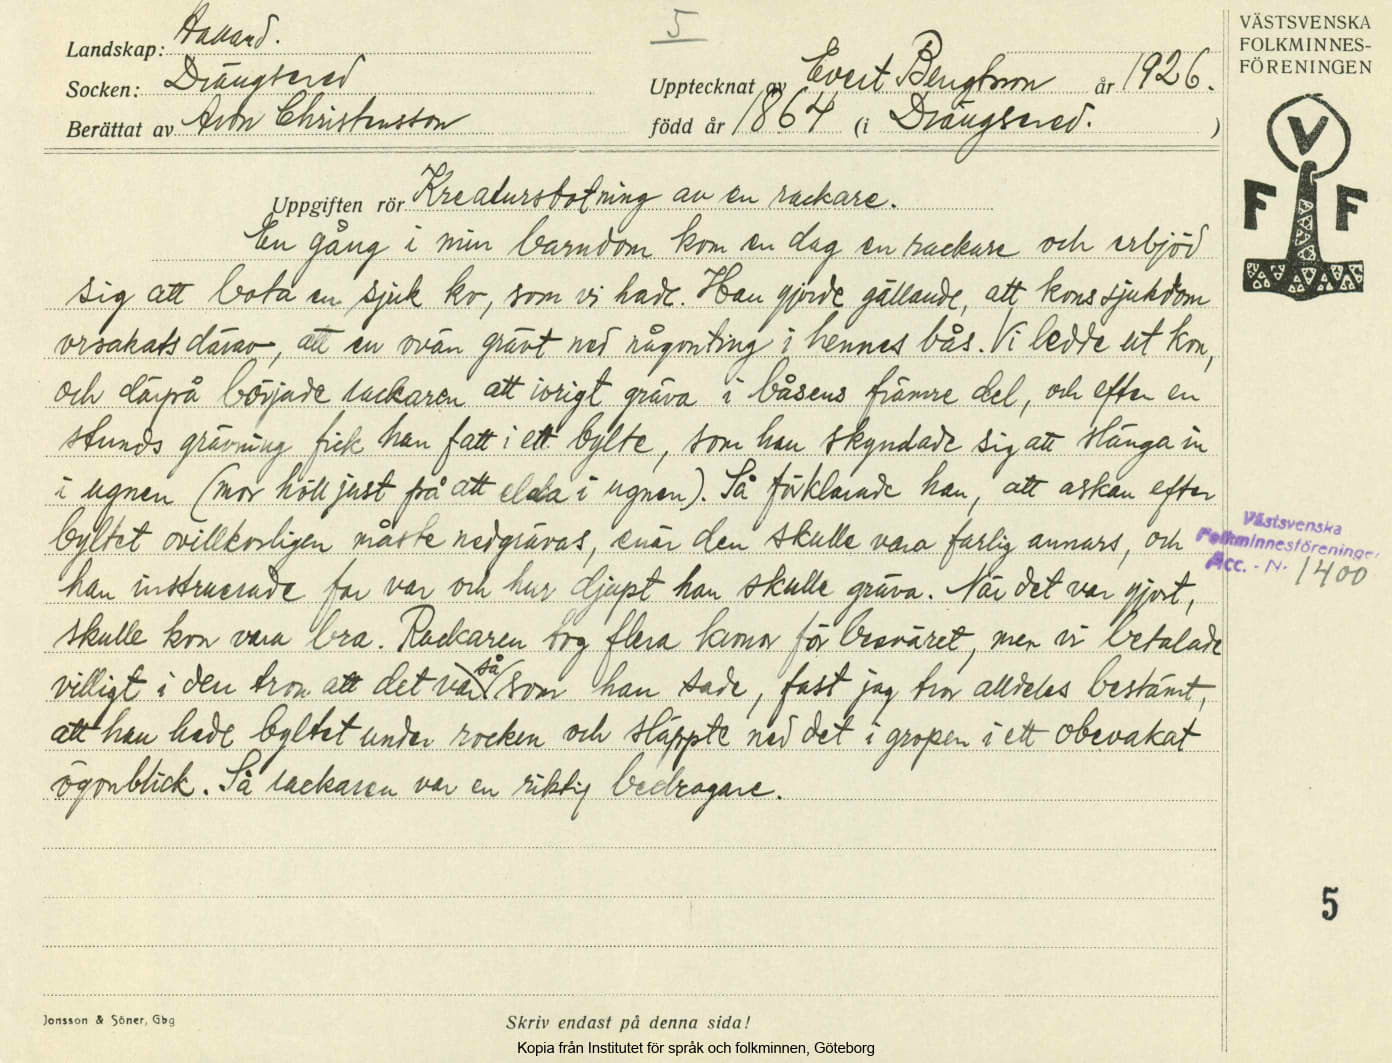 5
Landskap: Halland.
Socken: Drängsered
Berättat av Aron Christensson
Upptecknat av Evert Bengtsson år 1926.
född år 1864 (i Drängsered. )
VÄSTSVENSKA
FOLKMINNES-
FÖRENINGEN
V
F F
Uppgiften rör Kreatursbotning av en rackare.
En gång i min barndom kom en dag en rackare och erbjöd
sig att bota en sjuk ko, som vi hade. Han gjorde gällande, att kons sjukdom
orsakats därav, att en ovän grävt ned någonting i hennes bås. Vi ledde ut kon,
och därpå började rackaren att ivrigt gräva i båsens främre del, och efter en
stunds grävning fick han fatt i ett bylte, som han skyndade sig att slänga in
i ugnen (mor höll just på att elda i ugnen). Så förklarade han, att askan efter
byltet ovillkorligen måste nedgrävas, enär den skulle vara farlig annars, och
han instruerade far var och hur djupt han skulle gräva. När det var gjort,
skulle kon vara bra. Rackaren tog flera kronor för besväret, men vi betalade
villigt i den tron att det var så som han sade, fast jag tror alldeles bestämt,
att han hade byltet under rocken och släppte ned det i gropen i ett obevakat
ögonblick. Så rackaren var en riktig bedragare.
Västsvenska
Folkminnesföreningen
Acc. - N. 1400
5
Jonsson & Söner, Gbg
Skriv endast på denna sida!
Kopia från Institutet för språk och folkminnen, Göteborg